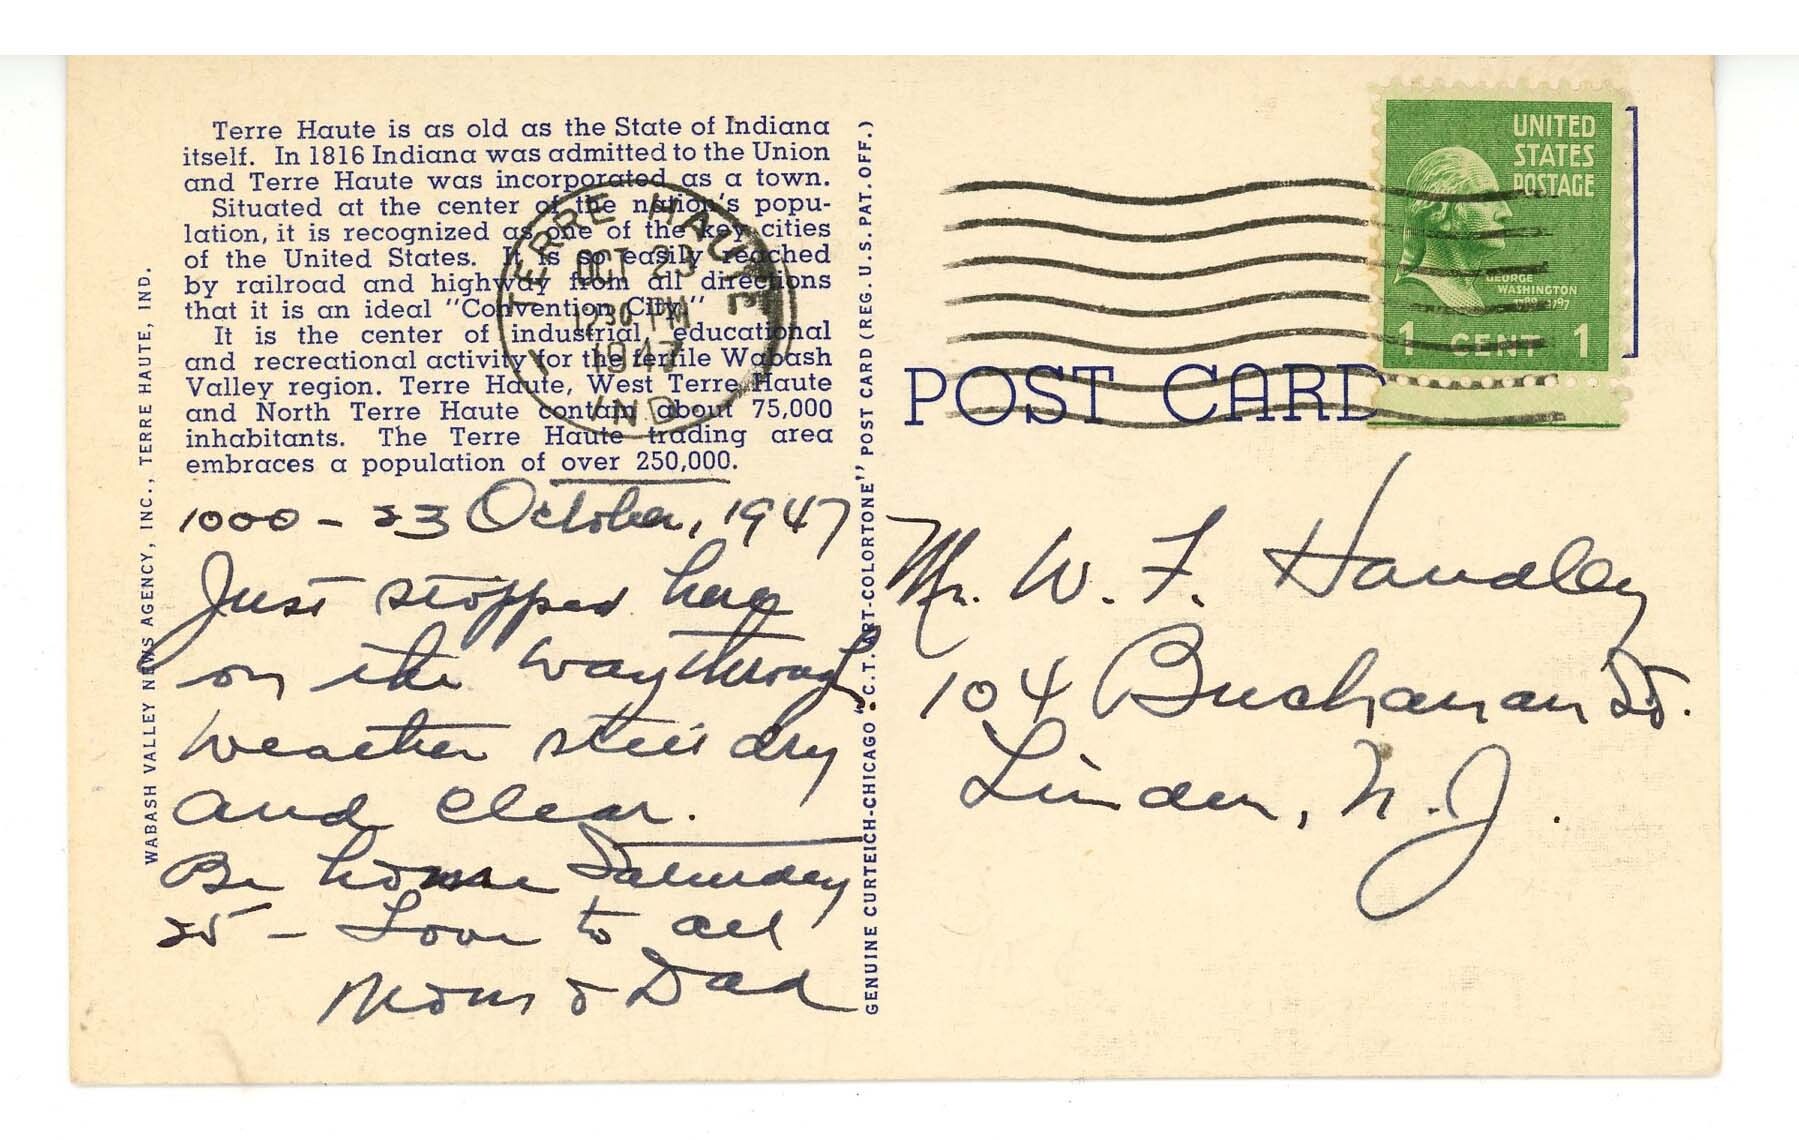 Terre Haute is as old as the State of Indiana
itself. In 1816 Indiana was admitted to the Union
and Terre Haute was incorporated as a town.
Situated at the center of the nation's popu-
lation, it is recognized as one of the key cities
of the United States. It is so easily reached
by railroad and highway from all directions
that it is an ideal "Convention City."
It is the center of industrial, educational
and recreational activity for the fertile Wabash
Valley region. Terre Haute, West Terre Haute
and North Terre Haute contain about 75,000
inhabitants. The Terre Haute trading area
embraces a population of over 250,000.
TERRE HAUTE
OCT 23
1230 PM
1947
IND
1
1000 - 23 October, 1947
Just stopped here
on the way through
weather still dry
and clear.
Be home Saturday
25 - Love to all
Mom & Dad
WABASH VALLEY NEWS AGENCY, INC., TERRE HAUTE, IND.
GENUINE CURTEICH-CHICAGO "C.T. ART-COLORTONE" POST CARD (REG. U.S. PAT. OFF.)
UNITED
STATES
POSTAGE
GEORGE
WASHINGTON
1789 1797
1 CENT 1
POST CARD
Mr. W. F. Handley
104 Buchanan St.
Linden, N.J.